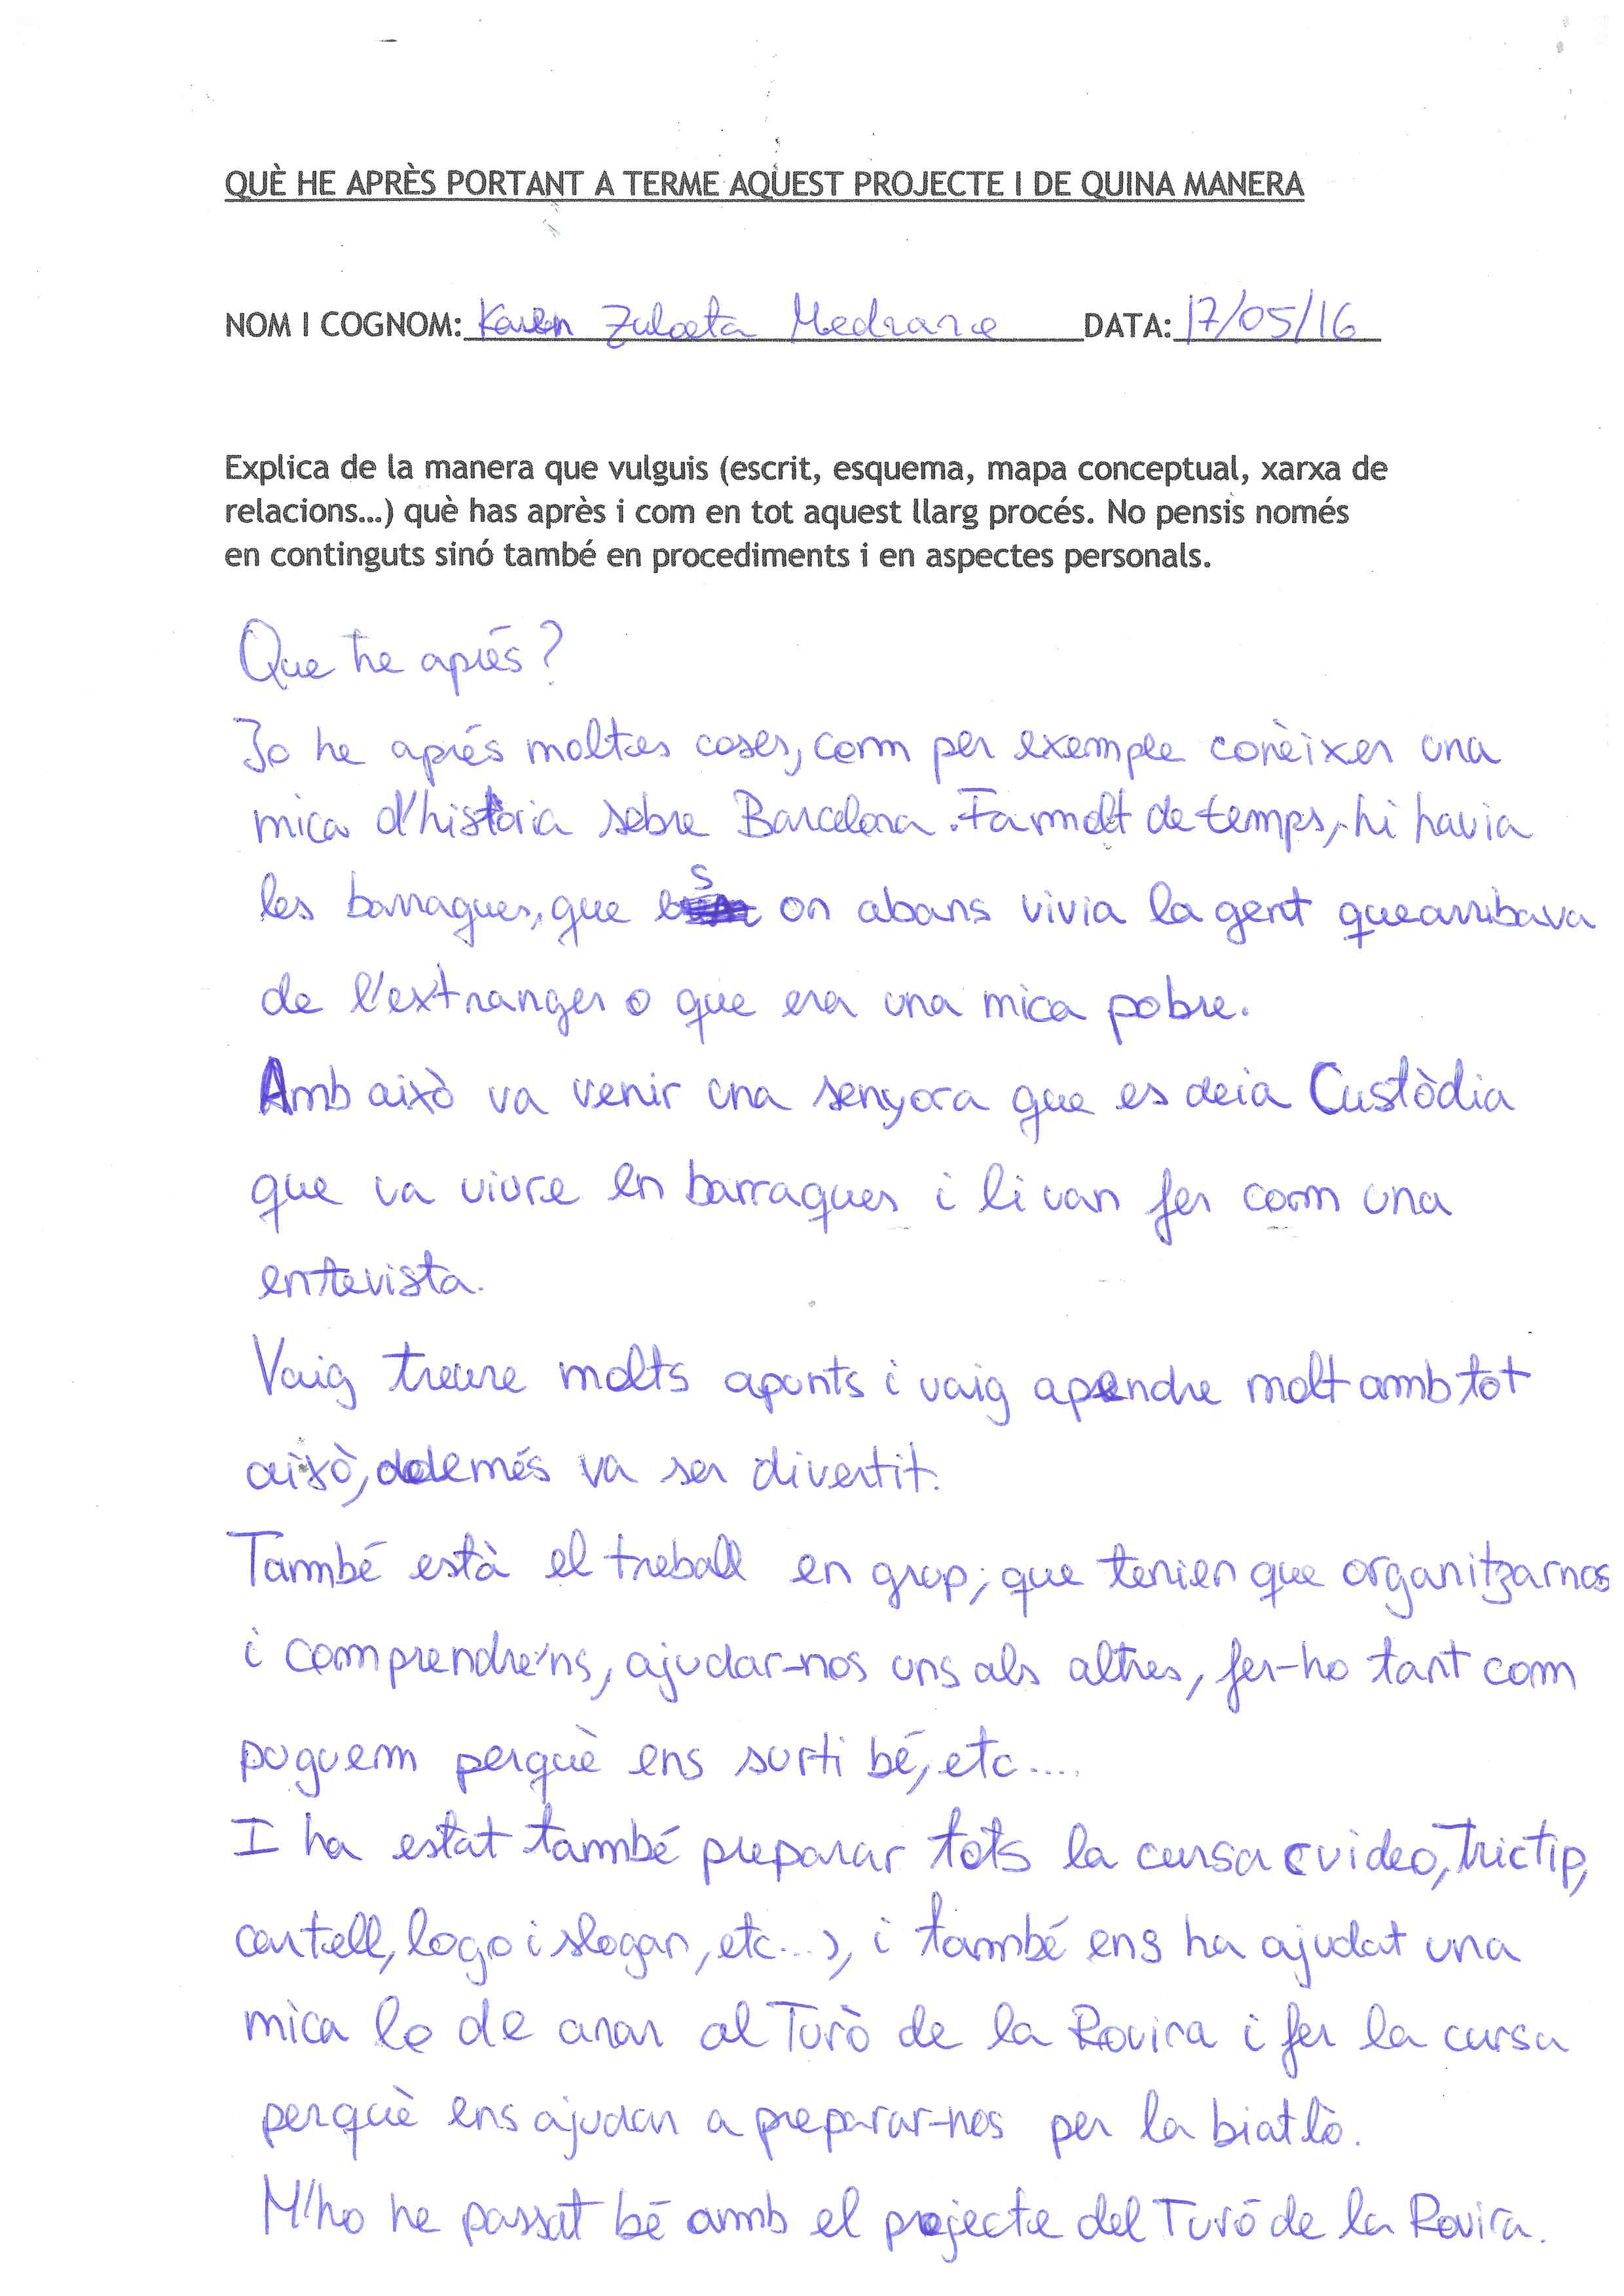 QUÈ HE APRÈS PORTANT A TERME AQUEST PROJECTE I DE QUINA MANERA
NOM I COGNOM: Karen Zuloeta Medrano DATA: 17/05/16
Explica de la manera que vulguis (escrit, esquema, mapa conceptual, xarxa de
relacions...) què has après i com en tot aquest llarg procés. No pensis només
en continguts sinó també en procediments i en aspectes personals.
Que he aprés?
Jo he aprés moltes coses, com per exemple conèixer una
mica d'història sobre Barcelona. Fa molt de temps, hi havia
les barraques, que és on abans vivia la gent que arribava
de l'extranger o que era una mica pobre.
Amb això va venir una senyora que es deia Custòdia
que va viure en barraques i li van fer com una
entevista.
Vaig treure molts apunts i vaig apendre molt amb tot
això, ademés va ser divertit.
També està el treball en grup, que tenien que organitzarnos
i comprendre'ns, ajudar-nos uns als altres, fer-ho tant com
poguem perquè ens surti bé, etc....
I ha estat també preparar tots la cursa (video, trictip,
cartell, logo i slogan, etc...), i també ens ha ajudat una
mica lo de anar al Turò de la Rovira i fer la cursa
perquè ens ajudan a preparar-nos per la biatlò.
M'ho he passat bé amb el projecte del Turó de la Rovira.